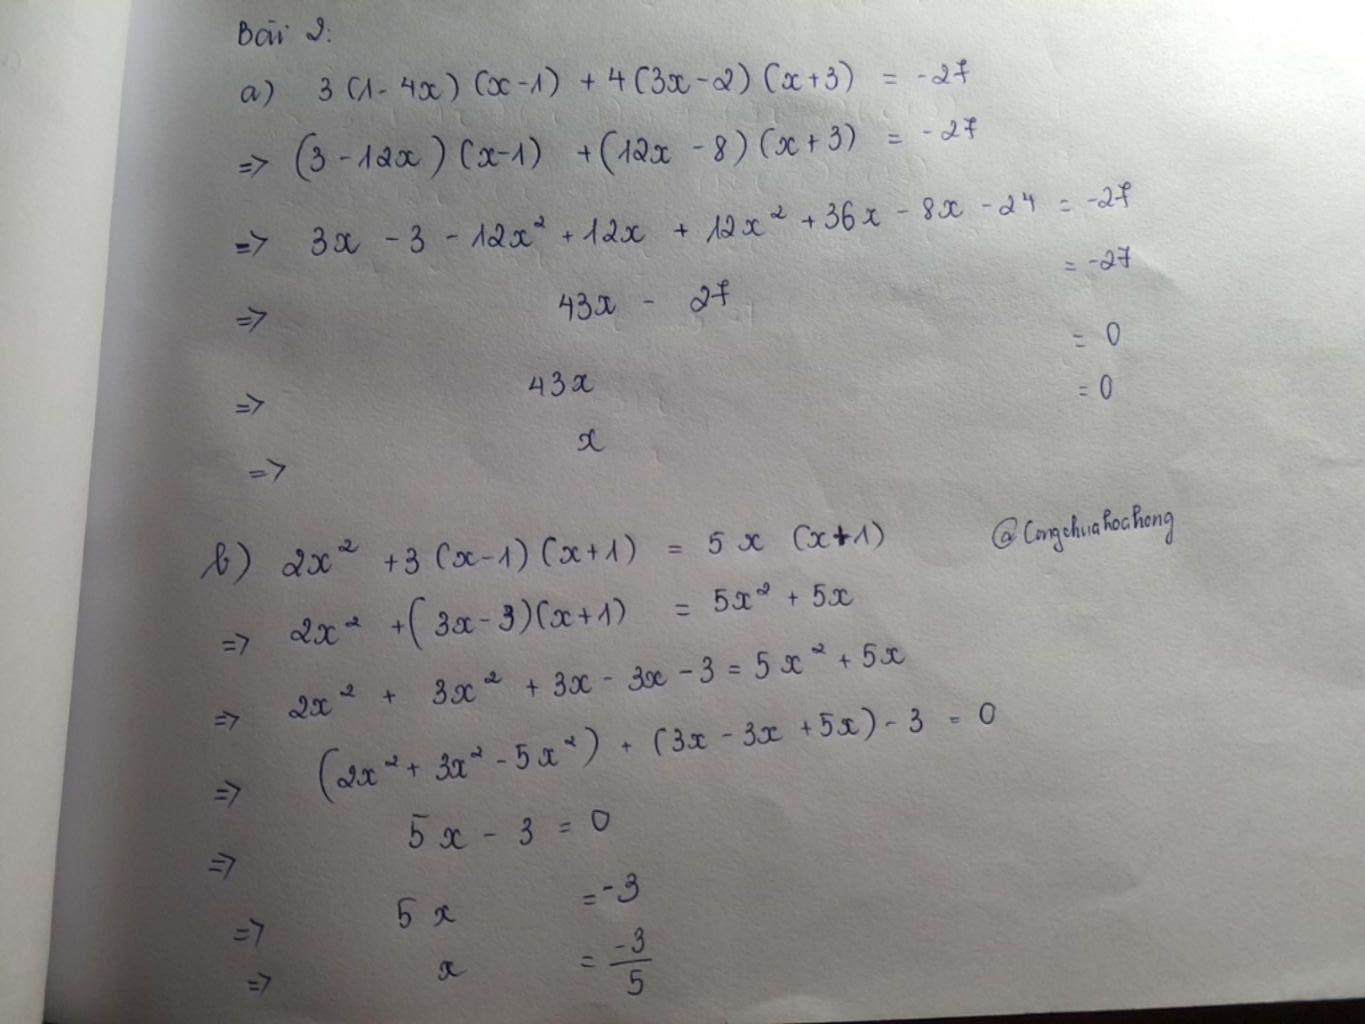 Bài 2:
a) 3 (1 - 4x) (x - 1) + 4 (3x - 2) (x + 3) = -27
=> (3 - 12x) (x - 1) + (12x - 8) (x + 3) = -27
=> 3x - 3 - 12x² + 12x + 12x² + 36x - 8x - 24 = -27
=> 43x - 27 = -27
=> 43x = 0
=> x = 0
b) 2x² + 3 (x - 1) (x + 1) = 5x (x + 1)
@Congchuahoahong
=> 2x² + (3x - 3) (x + 1) = 5x² + 5x
=> 2x² + 3x² + 3x - 3x - 3 = 5x² + 5x
=> (2x² + 3x² - 5x²) + (3x - 3x + 5x) - 3 = 0
=> 5x - 3 = 0
=> 5x = -3
=> x = -3/5